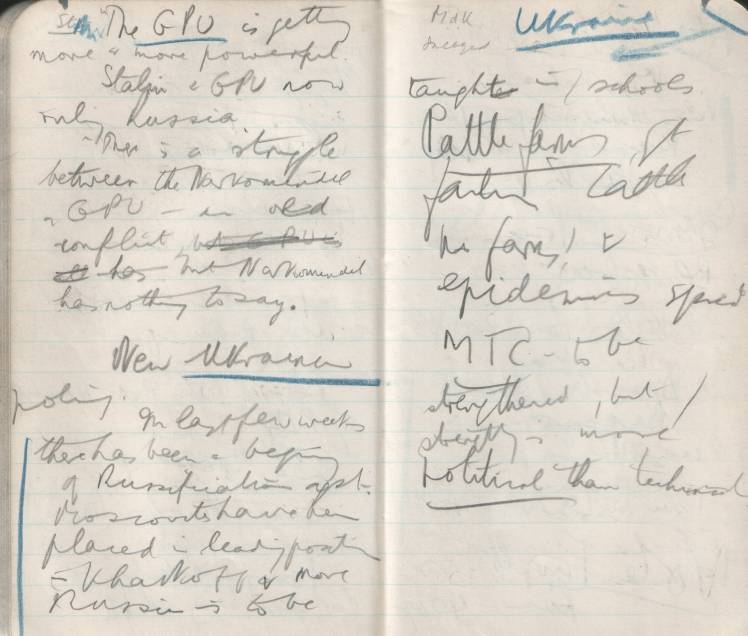 "The GPU is getting
more & more powerful.
Stalin & GPU now
rule Russia.
"There is a struggle
between the Narkomindel
& GPU – an old
conflict, but GPU is
has but Narkomindel
has nothing to say.
New Ukrainian
policy.
In last few weeks
there has been a
of Russification
Moscovites have been
placed in leading position
in Kharkoff & more
Russian is to be
Ukraine
taught in schools.
Cattle farms get
cattle
in farms, &
epidemics spread
MTC – to be
strengthened, but
strength is more
political than technical